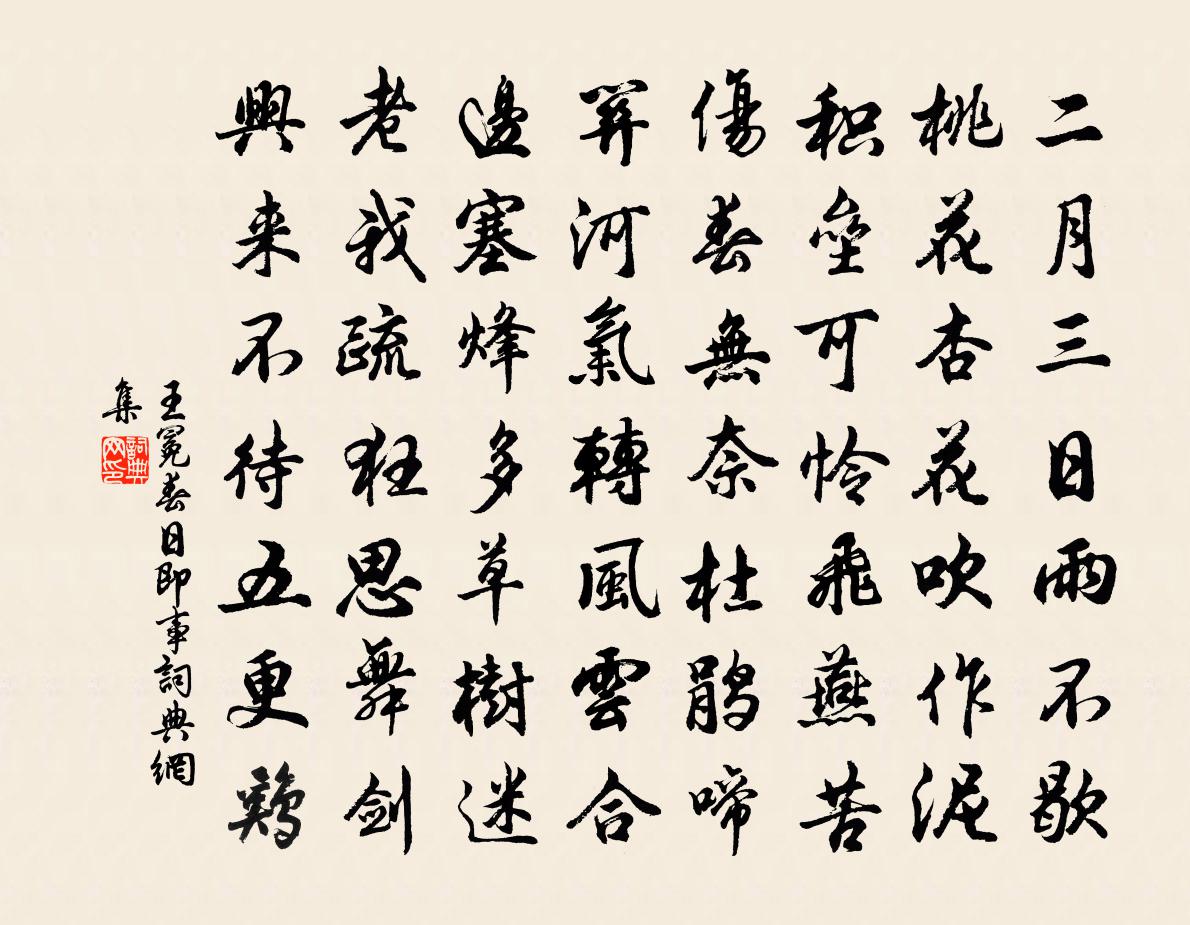 二月三日雨不歇
桃花杏花吹作泥
积壘可怜飛燕苦
傷春無奈杜鹃啼
關河氣轉風雲合
邊塞烽多草樹迷
老我疏狂思舞剑
興来不待五更鷄
王冕春日即事詞典網
集
詞典网印